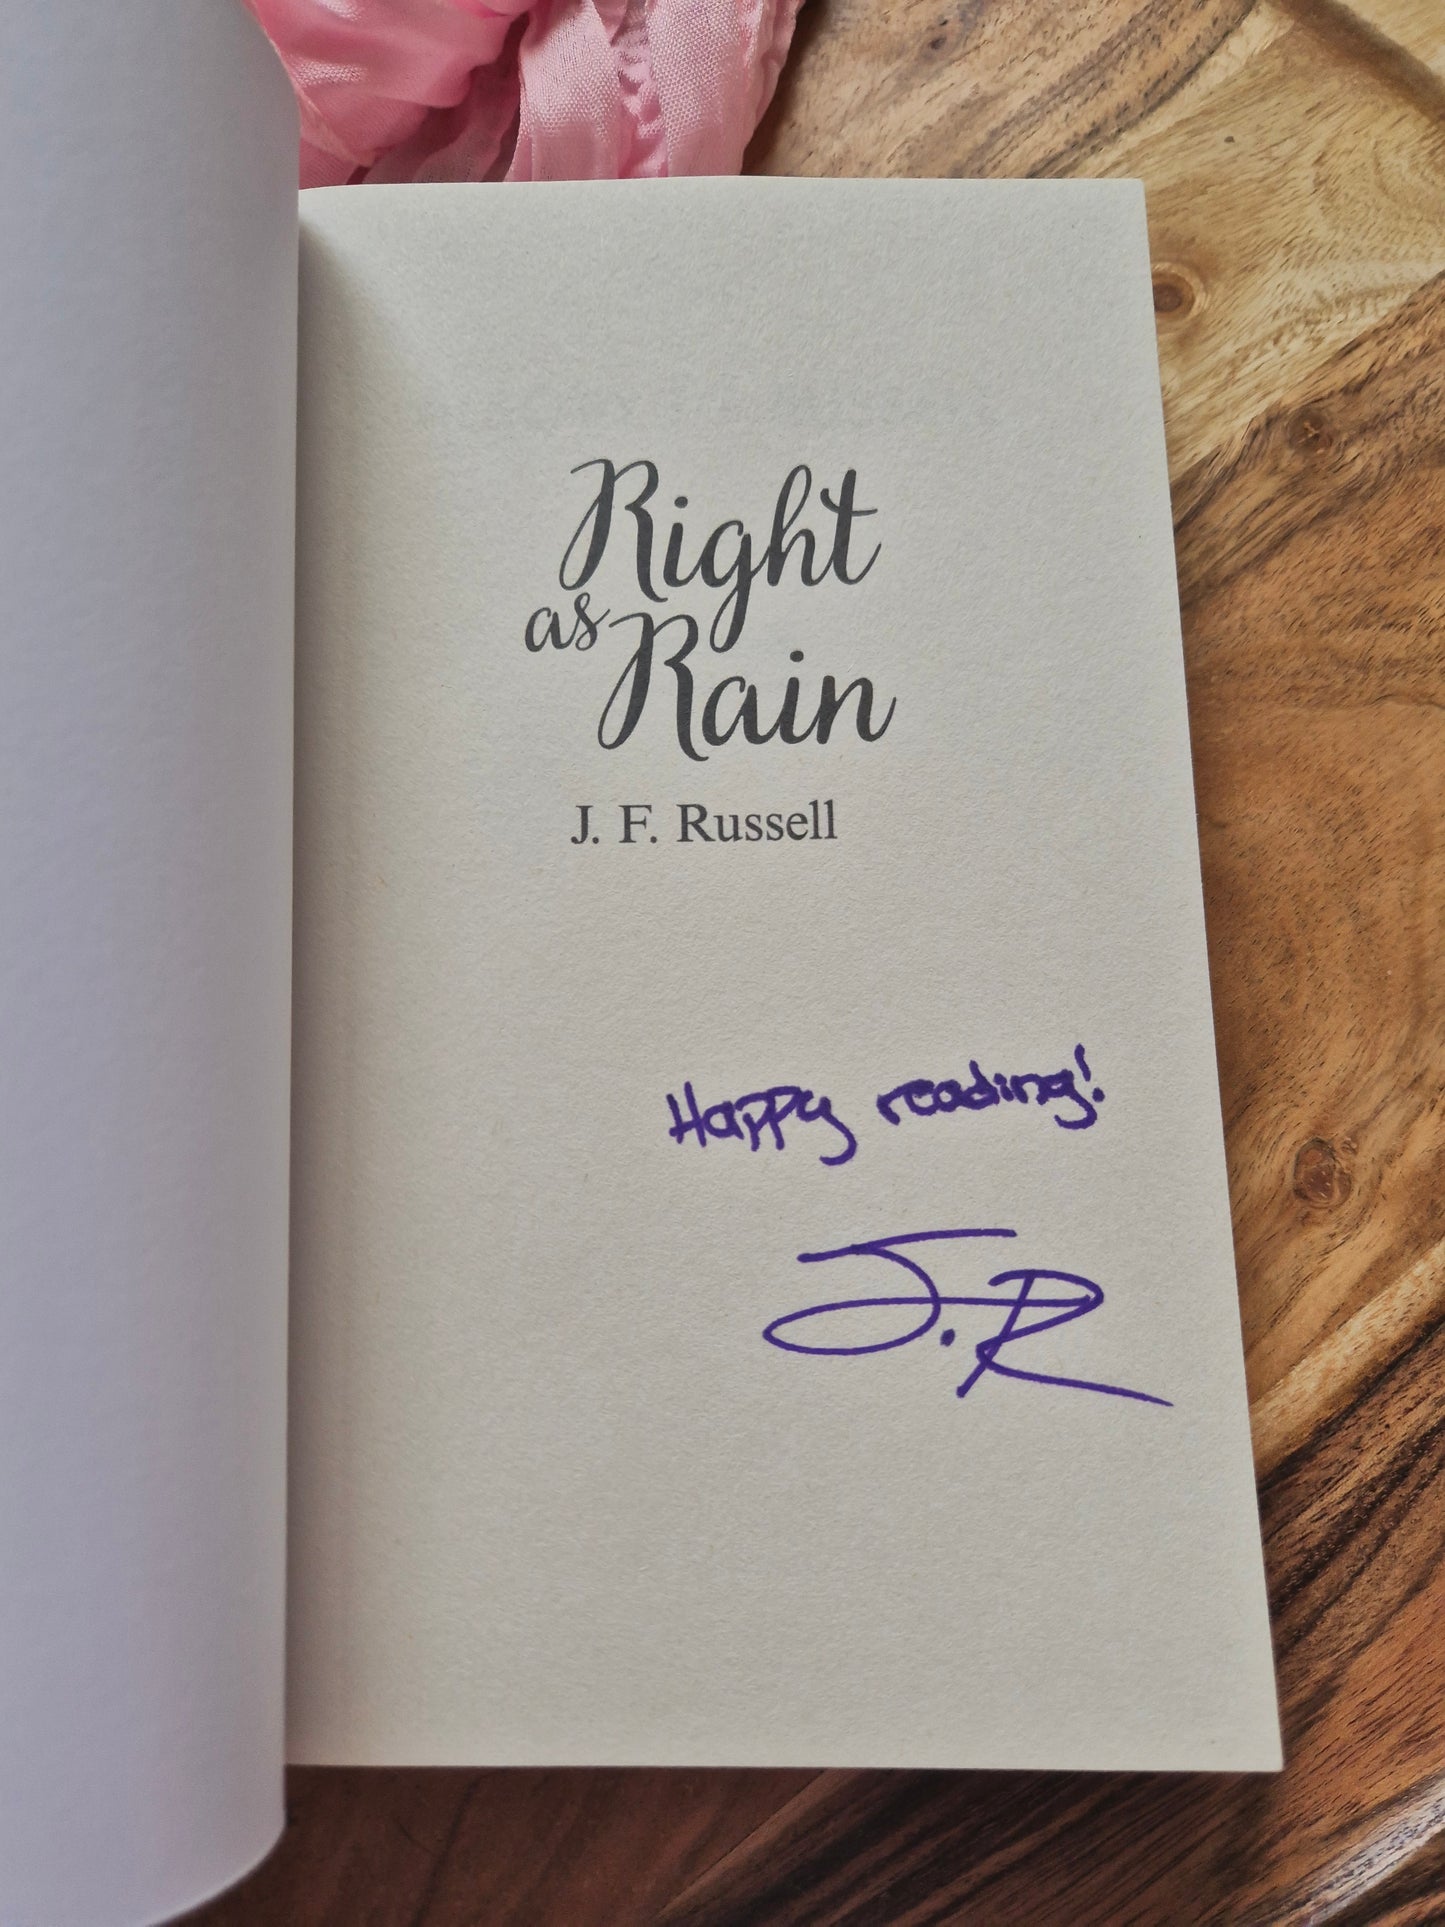 Right
as Rain
J. F. Russell
Happy reading!
J.R